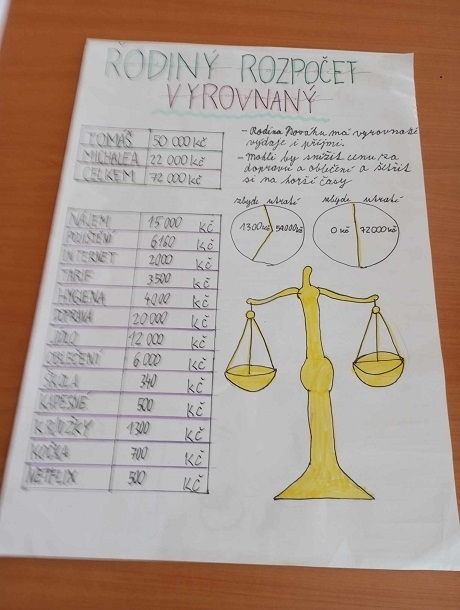 RODINÝ ROZPOČET
VYROVNANÝ
TOMÁŠ 50 000 Kč
MICHALEA 22 000 Kč
CELKEM 72 000 Kč
- Rodina Nováků má vyrovnané
výdaje i příjmi.
- Mohli by snížit cenu za
dopravu a oblečení a šetřit
si na horší časy
zbyde utratí zbyde utratí
1300Kč 0 Kč 72000Kč
NÁJEM 15 000 Kč
POJIŠTĚNÍ 6160 Kč
INTERNET 2000 Kč
TARIF 3500 Kč
HYGIENA 4000 Kč
DOPRAVA 20 000 Kč
JÍDLO 12 000 Kč
OBLEČENÍ 6 000 Kč
ŠKOLA 340 Kč
KAPESNÉ 500 Kč
KROUŽKY 1300 Kč
KOČKA 700 Kč
NETFLIX 500 Kč